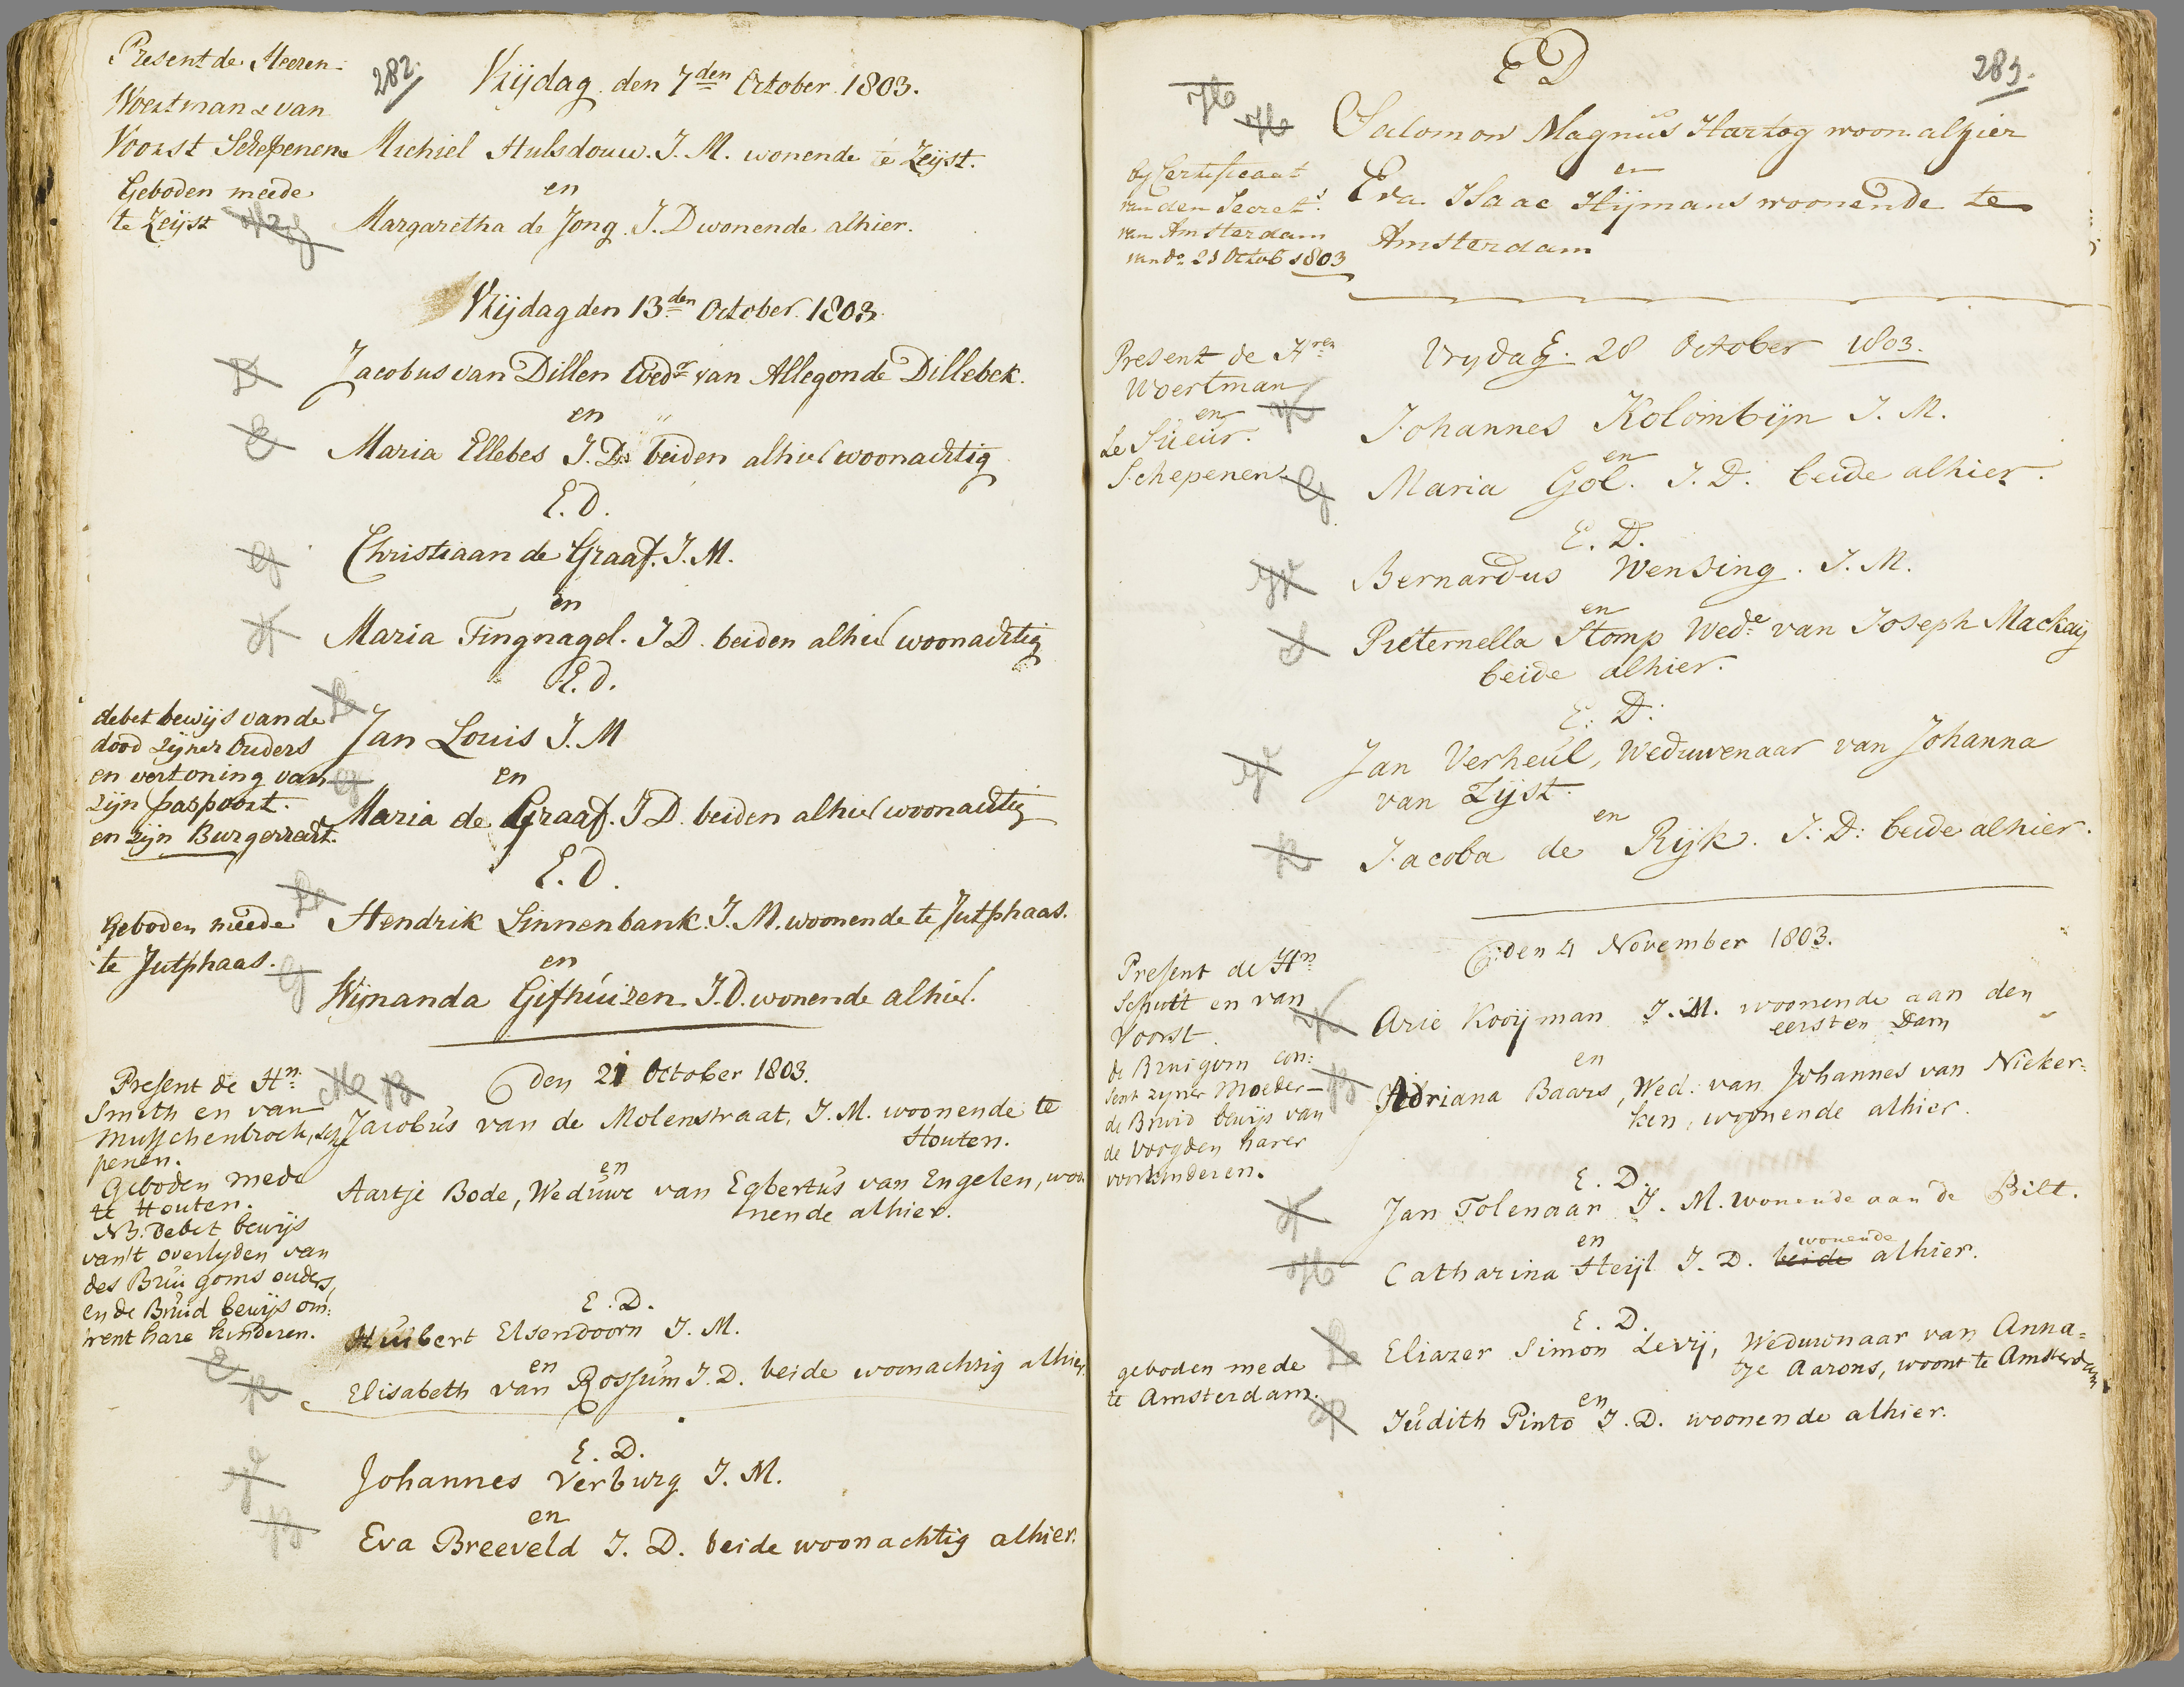 282.
Present de Heeren
Woertman & van
Voorst Schepenen
Geboden meede
te Zeijst
Vrijdag den 7den October 1803.
Michiel Hulsdouw. J. M. wonende te Zeijst.
en
Margaretha de Jong. J. D wonende alhier.
Vrijdag den 13den October 1803.
Jacobus van Dillen Wedr van Allegonde Dillebek.
en
Maria Ellebes J. D. beiden alhier woonachtig
E. D.
Christiaan de Graaf. J. M.
en
Maria Fingnagel. J D. beiden alhier woonachtig
E. D.
debet bewijs van de
dood zijner Ouders
en vertoning van
zijn paspoort.
en zijn Burgerrecht.
Jan Louis J. M
en
Maria de Graaf. J D. beiden alhier woonachtig
E. D.
Geboden meede
te Jutphaas.
Hendrik Linnenbank. J. M. woonende te Jutphaas.
en
Wijnanda Gifhuizen. J. D. wonende alhier.
Present de Hn:
Smith en van
Musschenbroek, Sche
penen.
Geboden mede
te Houten.
NB. Debet bewijs
van 't overlyden van
des Bruigoms ouders,
en de Bruid bewijs om:
trent hare kinderen.
den 21 October 1803.
Jacobus van de Molenstraat, J. M. woonende te
Houten.
en
Aartje Bode, Weduwe van Egbertus van Engelen, woo
nende alhier.
E. D.
Huibert Elsendoorn J. M.
en
Elisabeth van Rossum J. D. beide woonachtig alhier
E. D.
Johannes Verburg J. M.
en
Eva Breeveld J. D. beide woonachtig alhier.
283.
E D
Salomon Magnus Hartog woon. alhier
en
Eva Isaac Hijmans woonende te
Amsterdam
by Certificaat
van den Secret:
van Amsterdam
van do 21 Octob 1803
Present de Hren
Woertman
en
Le Sueur.
Schepenen
Vrydag. 28 October 1803.
Johannes Kolombijn J. M.
en
Maria Gol. J. D. beide alhier.
E. D.
Bernardus Wensing. J. M.
en
Pieternella Stomp Wede van Joseph Mackaij
beide alhier.
E. D.
Jan Verheul, Weduwenaar van Johanna
van Zijst.
en
Jacoba de Rijk. J. D: beide alhier.
Present de Hn
Schutt en van
Voorst.
de Bruigom con:
sent zyner Moeder
de Bruid bewijs van
de voogden harer
voorkinderen.
den 4 November 1803.
Arie Kooijman J. M. woonende aan den
eersten Dam
en
Adriana Baars, Wed. van Johannes van Nieker:
ken, woonende alhier.
E. D.
Jan Tolenaar J. M. wonende aan de Bilt.
en
wonende
Catharina Heijl J. D. beide alhier.
E. D.
geboden mede
te Amsterdam.
Eliazer Simon Levij, Weduwnaar van Anna=
tje Aarons, woont te Amsterdam
en
Judith Pinto J. D. woonende alhier.